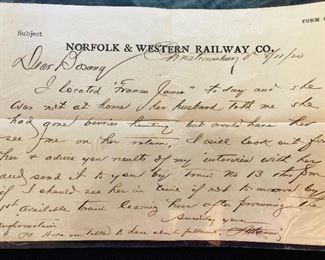 FORM
Subject
NORFOLK & WESTERN RAILWAY CO.
Dear Bosang Christiansburg Va 9/11/20
I located "Frances Jones" to day and she
was not at home & her husband told me she
had gone berries hunting but would have her
see me on her return, I will look out for
her & advise you results of my interview with her
and send it to you by train No 13 this pm
if I should see her in time if not to morrow by
1st available train leaving here after procuring the
information Sincerely yours